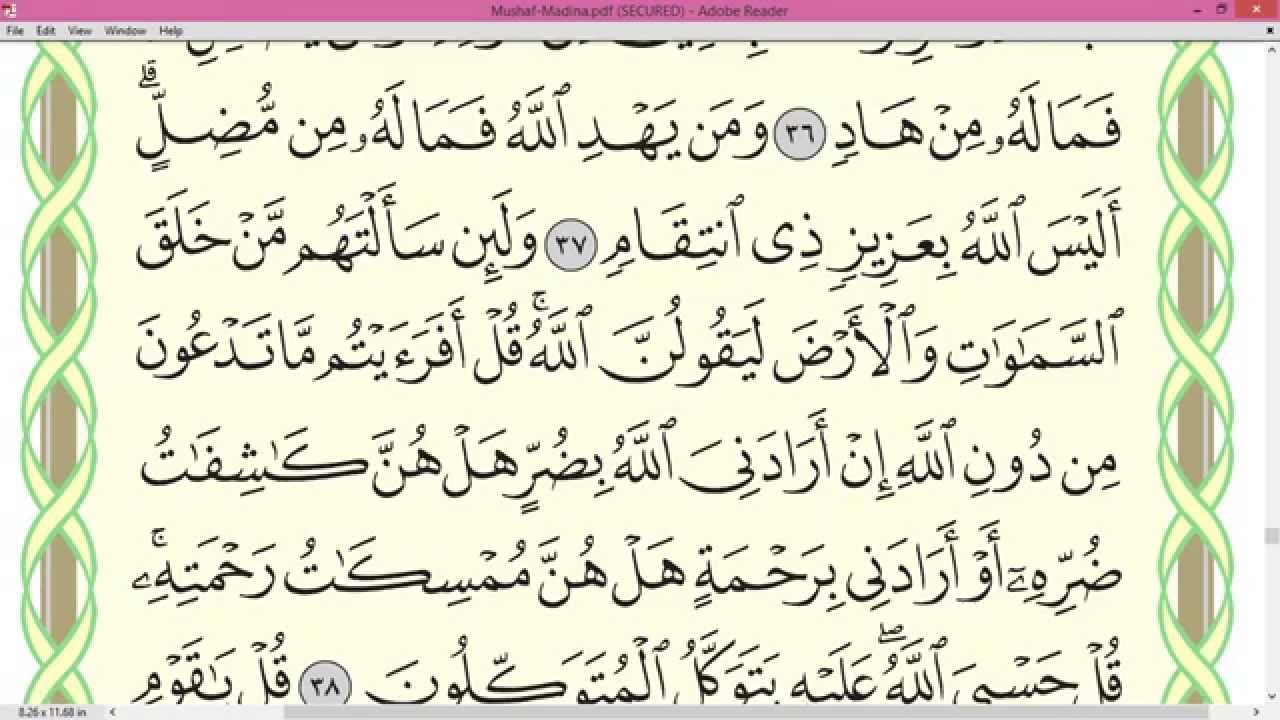 Mushaf-Madina.pdf (SECURED) - Adobe Reader
File Edit View Window Help
فَمَا لَهُۥ مِنْ هَادٍ ٣٦ وَمَن يَهْدِ ٱللَّهُ فَمَا لَهُۥ مِن مُّضِلٍّ ۗ
أَلَيْسَ ٱللَّهُ بِعَزِيزٍ ذِى ٱنتِقَامٍ ٣٧ وَلَئِن سَأَلْتَهُم مَّنْ خَلَقَ
ٱلسَّمَٰوَٰتِ وَٱلْأَرْضَ لَيَقُولُنَّ ٱللَّهُ ۚ قُلْ أَفَرَءَيْتُم مَّا تَدْعُونَ
مِن دُونِ ٱللَّهِ إِنْ أَرَادَنِىَ ٱللَّهُ بِضُرٍّ هَلْ هُنَّ كَٰشِفَٰتُ
ضُرِّهِۦٓ أَوْ أَرَادَنِى بِرَحْمَةٍ هَلْ هُنَّ مُمْسِكَٰتُ رَحْمَتِهِۦ ۚ
قُلْ حَسْبِىَ ٱللَّهُ ۖ عَلَيْهِ يَتَوَكَّلُ ٱلْمُتَوَكِّلُونَ ٣٨ قُلْ يَٰقَوْمِ
8.26 x 11.68 in